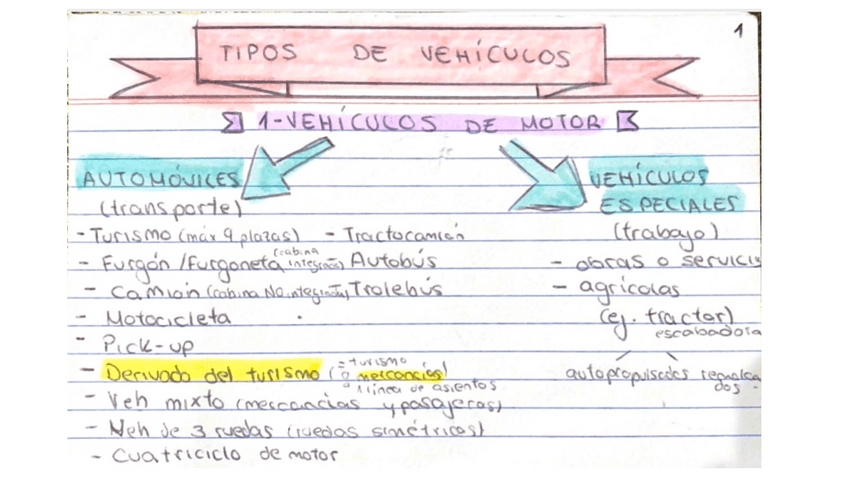 1
TIPOS DE VEHÍCULOS
1-VEHÍCULOS DE MOTOR
AUTOMÓVILES
(transporte)
- Turismo (máx 9 plazas)
- Furgón /Furgoneta (cabina integrada)
- Camión (cabina NO integrada)
- Motocicleta
- Pick-up
- Derivado del turismo (= turismo o mercancías)
1 línea de asientos
- Veh mixto (mercancías y pasajeros)
- Veh de 3 ruedas (ruedas simétricas)
- Cuatriciclo de motor
- Tractocamión
Autobús
Trolebús
VEHÍCULOS
ESPECIALES
(trabajo)
- obras o servicis
- agrícolas
(ej. tractor)
escabadora
autopropulsados remolca
dos